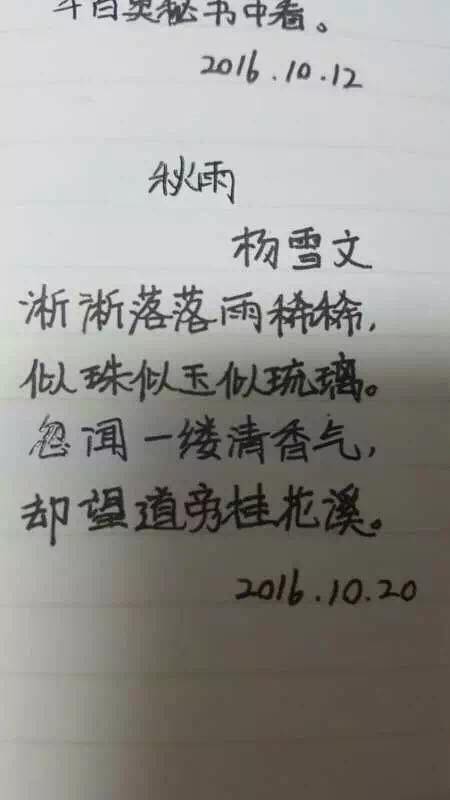 百奥秘书中看。
2016.10.12
秋雨
杨雪文
淅淅落落雨稀稀，
似珠似玉似琉璃。
忽闻一缕清香气，
却望道旁桂花溪。
2016.10.20